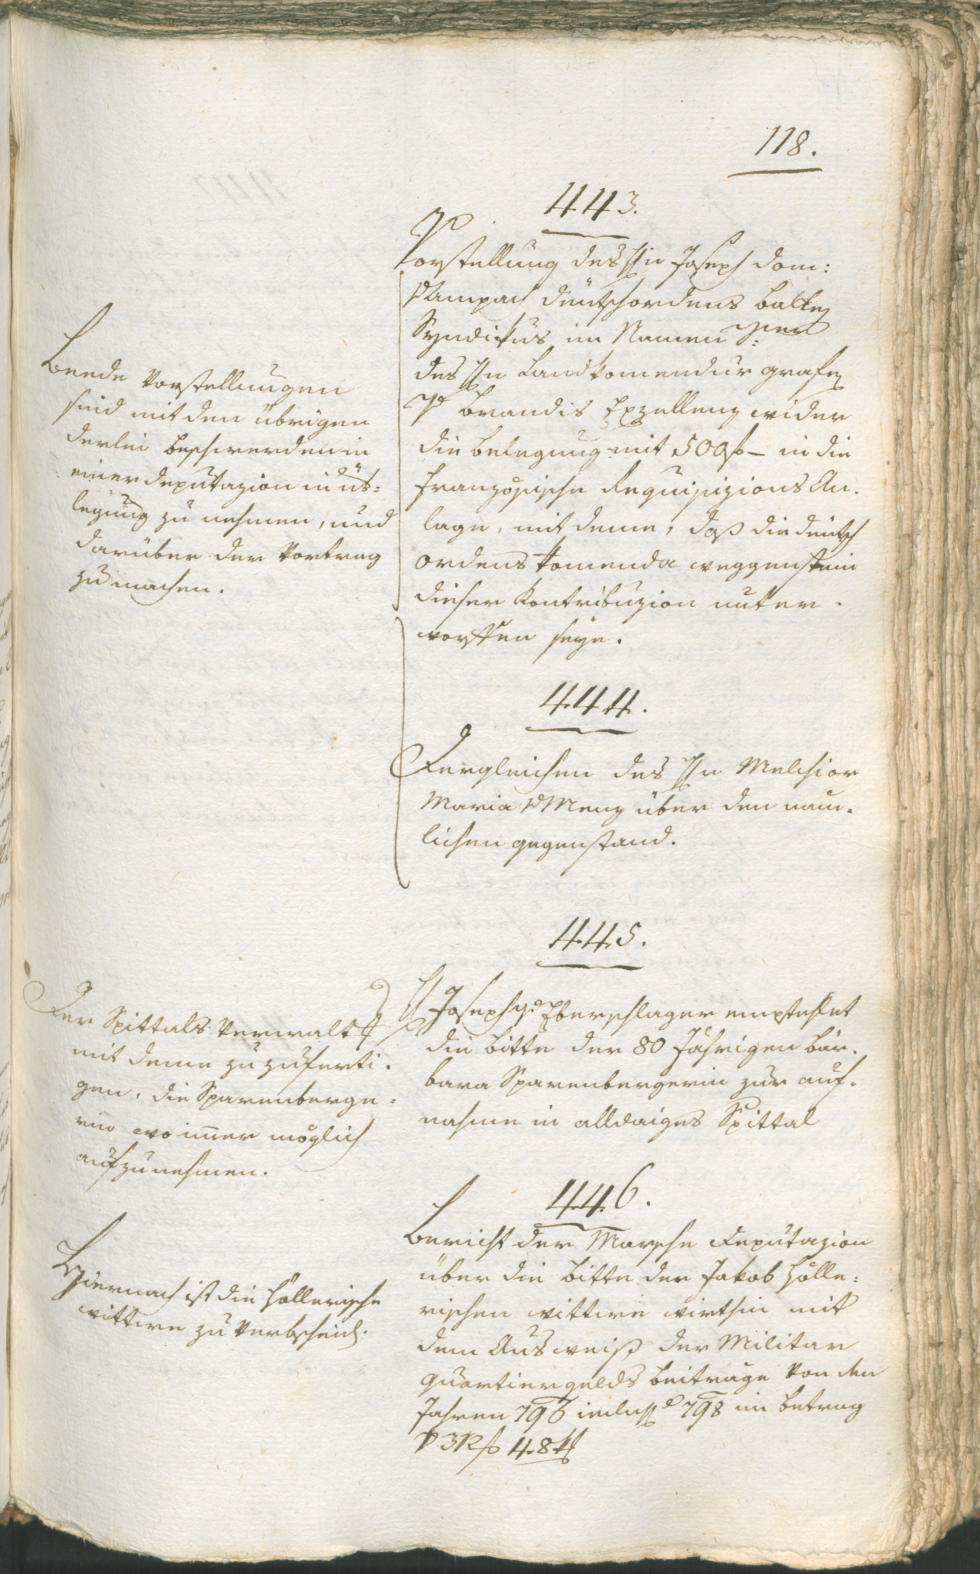 118.
443.
Vorstellung des H:n Joseph Dom:
v Campach deutschordens balley
Syndikus im Namen
des H:n Landkomendur grafen
v Brandis Exzellenz wider
die belegung mit 500 f – in die
französische Requisizions An-
lage, mit deme, daß die deutsch
ordens Komenda weggenstein
dieser Kontribuzion unter-
worffen seye.
Beede Vorstellungen
sind mit den übrigen
derlei beschwerden in
einer deputazion in üs-
legung zu nehmen, und
darüber der Vortrag
zu machen.
444.
Dergleichen des H:n Melchior
Maria v Menz über den näm-
lichen gegenstand.
445.
H Joseph v: Eberschlager empfehlet
die bitte der 80 Jährigen bär-
bara Sparenbergerin zur auf-
nahme in alldaiges Spittal
Der Spittals Verwalt
mit deme zuzuferti-
gen, die Sparenberge-
rin wo immer möglich
aufzunehmen.
446.
Bericht der Marsche Deputazion
über die bitte der Jakob Hölle-
rischen wittwe wirthin mit
dem Ausweiß der Militar
quartiergelds beiträge von den
Jahren 796 inclus: 798 im betrag
v 312 f 48 x
Hiernach ist die Höllerische
wittwe zu verbscheid: